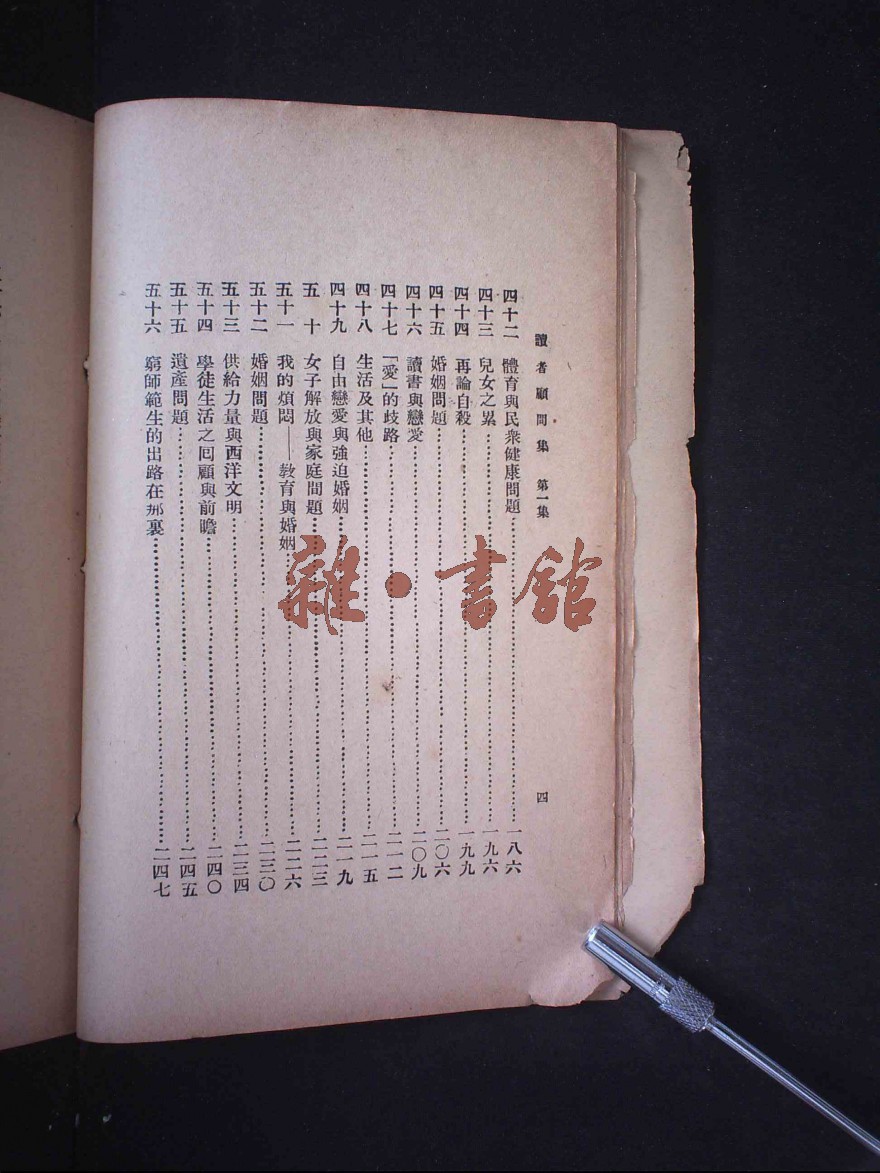 讀者顧問集 第一集 四
四十二 體育與民衆健康問題……一八六
四十三 兒女之累……一九六
四十四 再論自殺……一九九
四十五 婚姻問題……二〇六
四十六 讀書與戀愛……二〇九
四十七 「愛」的歧路……二一二
四十八 生活及其他……二一五
四十九 自由戀愛與強迫婚姻……二一九
五十 女子解放與家庭問題……二二三
五十一 我的煩悶——教育與婚姻……二二六
五十二 婚姻問題……二三〇
五十三 供給力量與西洋文明……二三四
五十四 學徒生活之回顧與前瞻……二四〇
五十五 遺產問題……二四五
五十六 窮師範生的出路在那裏……二四七
雜·書館